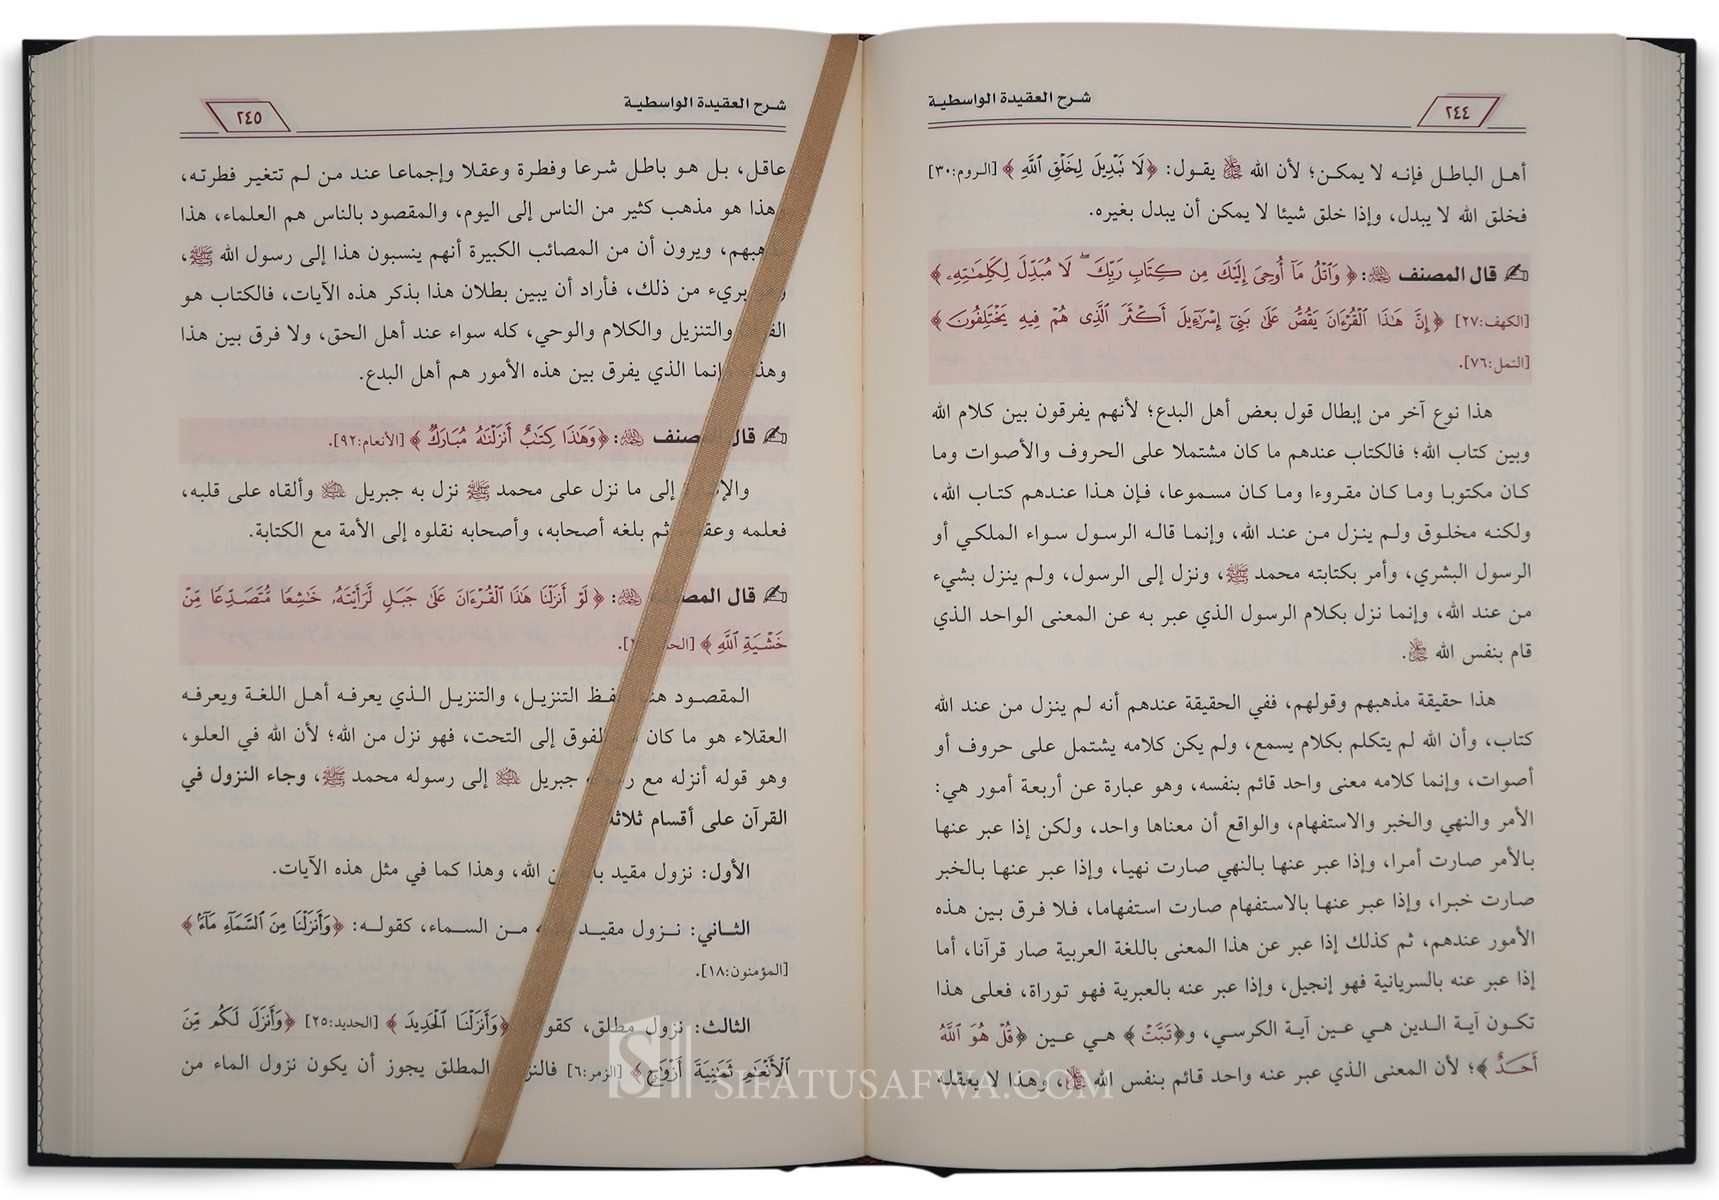 شرح العقيدة الواسطية
٢٤٤
أهل الباطل فإنه لا يمكن؛ لأن الله ﷻ يقول: ﴿لَا تَبْدِيلَ لِخَلْقِ ٱللَّهِ﴾ [الروم:٣٠]
فخلق الله لا يبدل، وإذا خلق شيئا لا يمكن أن يبدل بغيره.
قال المصنف ﵀: ﴿وَٱتْلُ مَآ أُوحِىَ إِلَيْكَ مِن كِتَابِ رَبِّكَ ۖ لَا مُبَدِّلَ لِكَلِمَـٰتِهِۦ﴾
[الكهف:٢٧] ﴿إِنَّ هَـٰذَا ٱلْقُرْءَانَ يَقُصُّ عَلَىٰ بَنِىٓ إِسْرَٰٓءِيلَ أَكْثَرَ ٱلَّذِى هُمْ فِيهِ يَخْتَلِفُونَ﴾
[النمل:٧٦].
هذا نوع آخر من إبطال قول بعض أهل البدع؛ لأنهم يفرقون بين كلام الله
وبين كتاب الله؛ فالكتاب عندهم ما كان مشتملا على الحروف والأصوات وما
كان مكتوبا وما كان مقروءا وما كان مسموعا، فإن هذا عندهم كتاب الله،
ولكنه مخلوق ولم ينزل من عند الله، وإنما قاله الرسول سواء الملكي أو
الرسول البشري، وأمر بكتابته محمد ﷺ، ونزل إلى الرسول، ولم ينزل بشيء
من عند الله، وإنما نزل بكلام الرسول الذي عبر به عن المعنى الواحد الذي
قام بنفس الله ﷻ.
هذا حقيقة مذهبهم وقولهم، ففي الحقيقة عندهم أنه لم ينزل من عند الله
كتاب، وأن الله لم يتكلم بكلام يسمع، ولم يكن كلامه يشتمل على حروف أو
أصوات، وإنما كلامه معنى واحد قائم بنفسه، وهو عبارة عن أربعة أمور هي:
الأمر والنهي والخبر والاستفهام، والواقع أن معناها واحد، ولكن إذا عبر عنها
بالأمر صارت أمرا، وإذا عبر عنها بالنهي صارت نهيا، وإذا عبر عنها بالخبر
صارت خبرا، وإذا عبر عنها بالاستفهام صارت استفهاما، فلا فرق بين هذه
الأمور عندهم، ثم كذلك إذا عبر عن هذا المعنى باللغة العربية صار قرآنا، أما
إذا عبر عنه بالسريانية فهو إنجيل، وإذا عبر عنه بالعبرية فهو توراة، فعلى هذا
تكون آية الدين هي عين آية الكرسي، و﴿تَبَّتْ﴾ هي عين ﴿قُلْ هُوَ ٱللَّهُ
أَحَدٌ﴾؛ لأن المعنى الذي عبر عنه واحد قائم بنفس الله ﷻ، وهذا لا يعقله
شرح العقيدة الواسطية
٢٤٥
عاقل، بل هو باطل شرعا وفطرة وعقلا وإجماعا عند من لم تتغير فطرته،
هذا هو مذهب كثير من الناس إلى اليوم، والمقصود بالناس هم العلماء، هذا
ويرون أن من المصائب الكبيرة أنهم ينسبون هذا إلى رسول الله ﷺ،
بريء من ذلك، فأراد أن يبين بطلان هذا بذكر هذه الآيات، فالكتاب هو
والتنزيل والكلام والوحي، كله سواء عند أهل الحق، ولا فرق بين هذا
وهذا إنما الذي يفرق بين هذه الأمور هم أهل البدع.
قال المصنف ﵀: ﴿وَهَـٰذَا كِتَـٰبٌ أَنزَلْنَـٰهُ مُبَارَكٌ﴾ [الأنعام:٩٢].
إلى ما نزل على محمد ﷺ نزل به جبريل ﵇ وألقاه على قلبه،
فعلمه ثم بلغه أصحابه، وأصحابه نقلوه إلى الأمة مع الكتابة.
قال المصنف ﵀: ﴿لَوْ أَنزَلْنَا هَـٰذَا ٱلْقُرْءَانَ عَلَىٰ جَبَلٍ لَّرَأَيْتَهُۥ خَـٰشِعًا مُّتَصَدِّعًا مِّنْ
خَشْيَةِ ٱللَّهِ﴾
المقصود التنزيل، والتنزيل الذي يعرفه أهل اللغة ويعرفه
العقلاء هو ما كان الفوق إلى التحت، فهو نزل من الله؛ لأن الله في العلو،
وهو قوله أنزله مع جبريل ﵇ إلى رسوله محمد ﷺ، وجاء النزول في
القرآن على أقسام ثلاثة
الأول: نزول مقيد الله، وهذا كما في مثل هذه الآيات.
الثاني: نزول مقيد من السماء، كقوله: ﴿وَأَنزَلْنَا مِنَ ٱلسَّمَآءِ مَآءً﴾
[المؤمنون:١٨].
الثالث: نزول مطلق، ﴿وَأَنزَلْنَا ٱلْحَدِيدَ﴾ [الحديد:٢٥] ﴿وَأَنزَلَ لَكُم مِّنَ
ٱلْأَنْعَـٰمِ ثَمَـٰنِيَةَ أَزْوَٰجٍ﴾ [الزمر:٦] المطلق يجوز أن يكون نزول الماء من
SIFATUSAFWA.COM